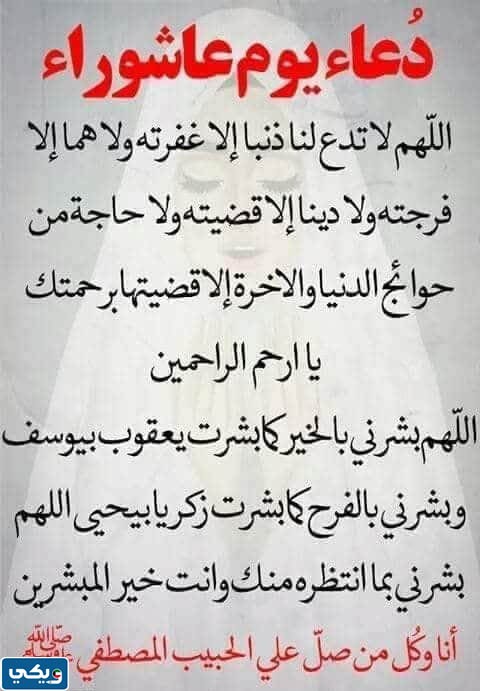 دُعاء يوم عاشوراء
اللّهم لا تدع لنا ذنبا إلا غفرته ولا هما إلا
فرجته ولا دينا إلا قضيته ولا حاجة من
حوائج الدنيا والاخرة إلا قضيتها برحمتك
يا ارحم الراحمين
اللّهم بشرني بالخير كما بشرت يعقوب بيوسف
وبشرني بالفرح كما بشرت زكريا بيحيى اللهم
بشرني بما انتظره منك وانت خير المبشرين
أنا وكُل من صلّ علي الحبيب المصطفي ﷺ
ويكي